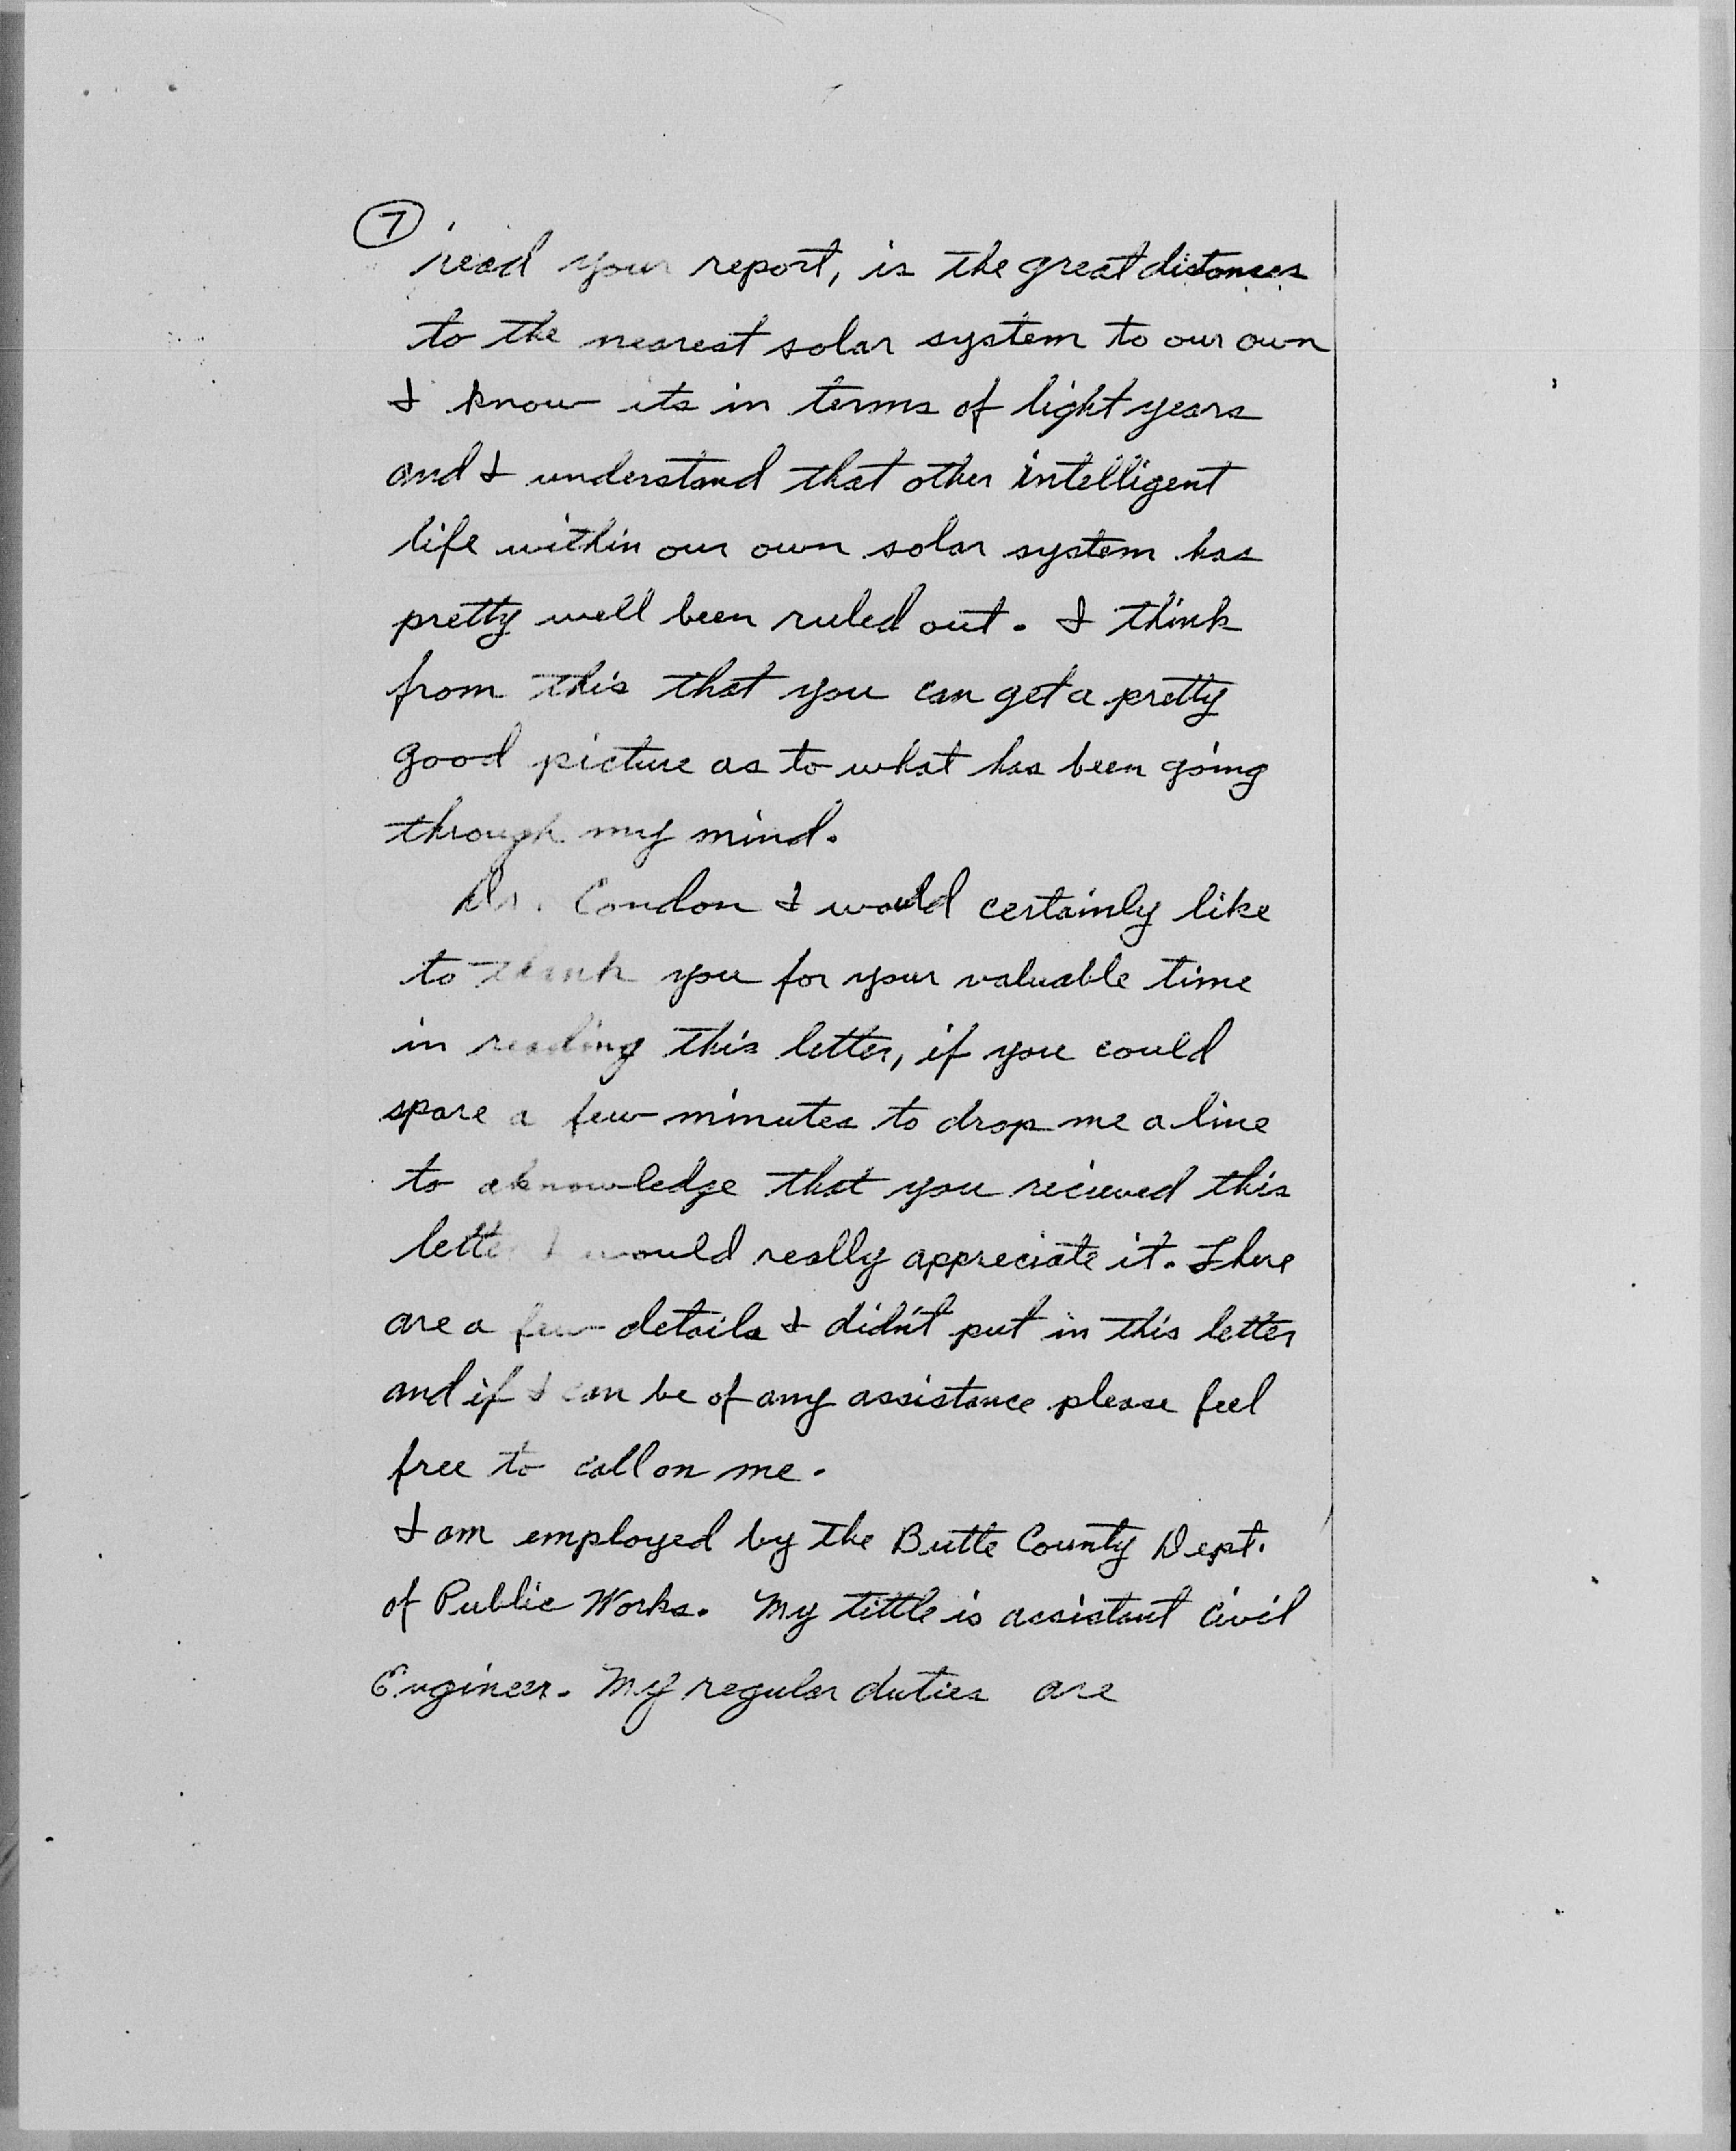 7
read your report, is the great distances
to the nearest solar system to our own
I know its in terms of light years
and I understand that other intelligent
life within our own solar system has
pretty well been ruled out. I think
from this that you can get a pretty
good picture as to what has been going
through my mind.
Dr. Condon I would certainly like
to thank you for your valuable time
in reading this letter, if you could
spare a few minutes to drop me a line
to aknowledge that you recieved this
letter I would really appreciate it. There
are a few details I didn't put in this letter
and if I can be of any assistance please feel
free to call on me.
I am employed by the Butte County Dept.
of Public Works. My tittle is assistant Civil
Engineer. My regular duties are